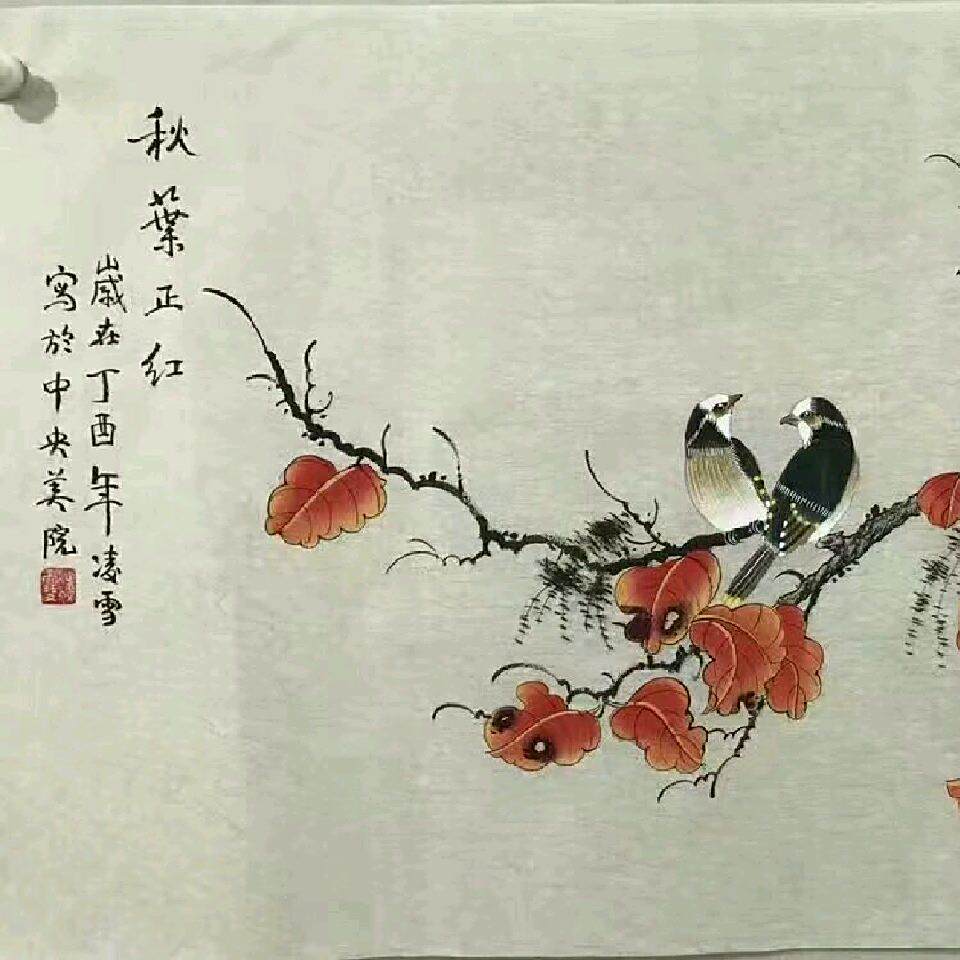 秋葉正红
歲在丁酉年凌雪
寫於中央美院